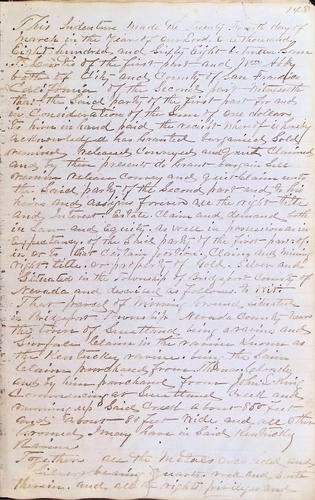 148
This Indenture made the Twenty Fourth day of
March in the Year of our Lord One thousand
Eight hundred and Sixty Eight between Sam
of the first part and Wm
both of City and County of San Francisco
California of the Second part Witnesseth
that the Said party of the first part for and
in Consideration of the Sum of one dollar
to him in hand paid, the receipt whereof is hereby
acknowledged has Granted bargained Sold
remised Released Conveyed and quit Claimed
and by these present do Grant bargain Sell
remise release convey and quit claim unto
the Said party of the Second part and to his
heirs and assigns forever all the right title
and Interest Estate Claim and demand both
in Law and Equity as well in possession as in
Expectancy of the Said party of the first part of
in or to that Certain portion Claim and mining
right title or property of Gold Silver and
Situated in the township of Bridgeport County of
Nevada and described as follows to wit
That parcel of Mining Ground situated
in Bridgeport Township Nevada County near
the town of Sweetland being a ravine and
Surface Claim in the ravine Known as
the Kentucky ravine being the Same
Claim purchased from Thomas
and by him purchased from John King
Commencing at Sweetland Creek and
running up Said Creek about 800 feet
and about 80 feet Wide and all other
Ground I may have in Said Kentucky
Ravine
Together all the Metals over Gold and
Silver bearing quartz rock and earth
therein and all the rights privileges and